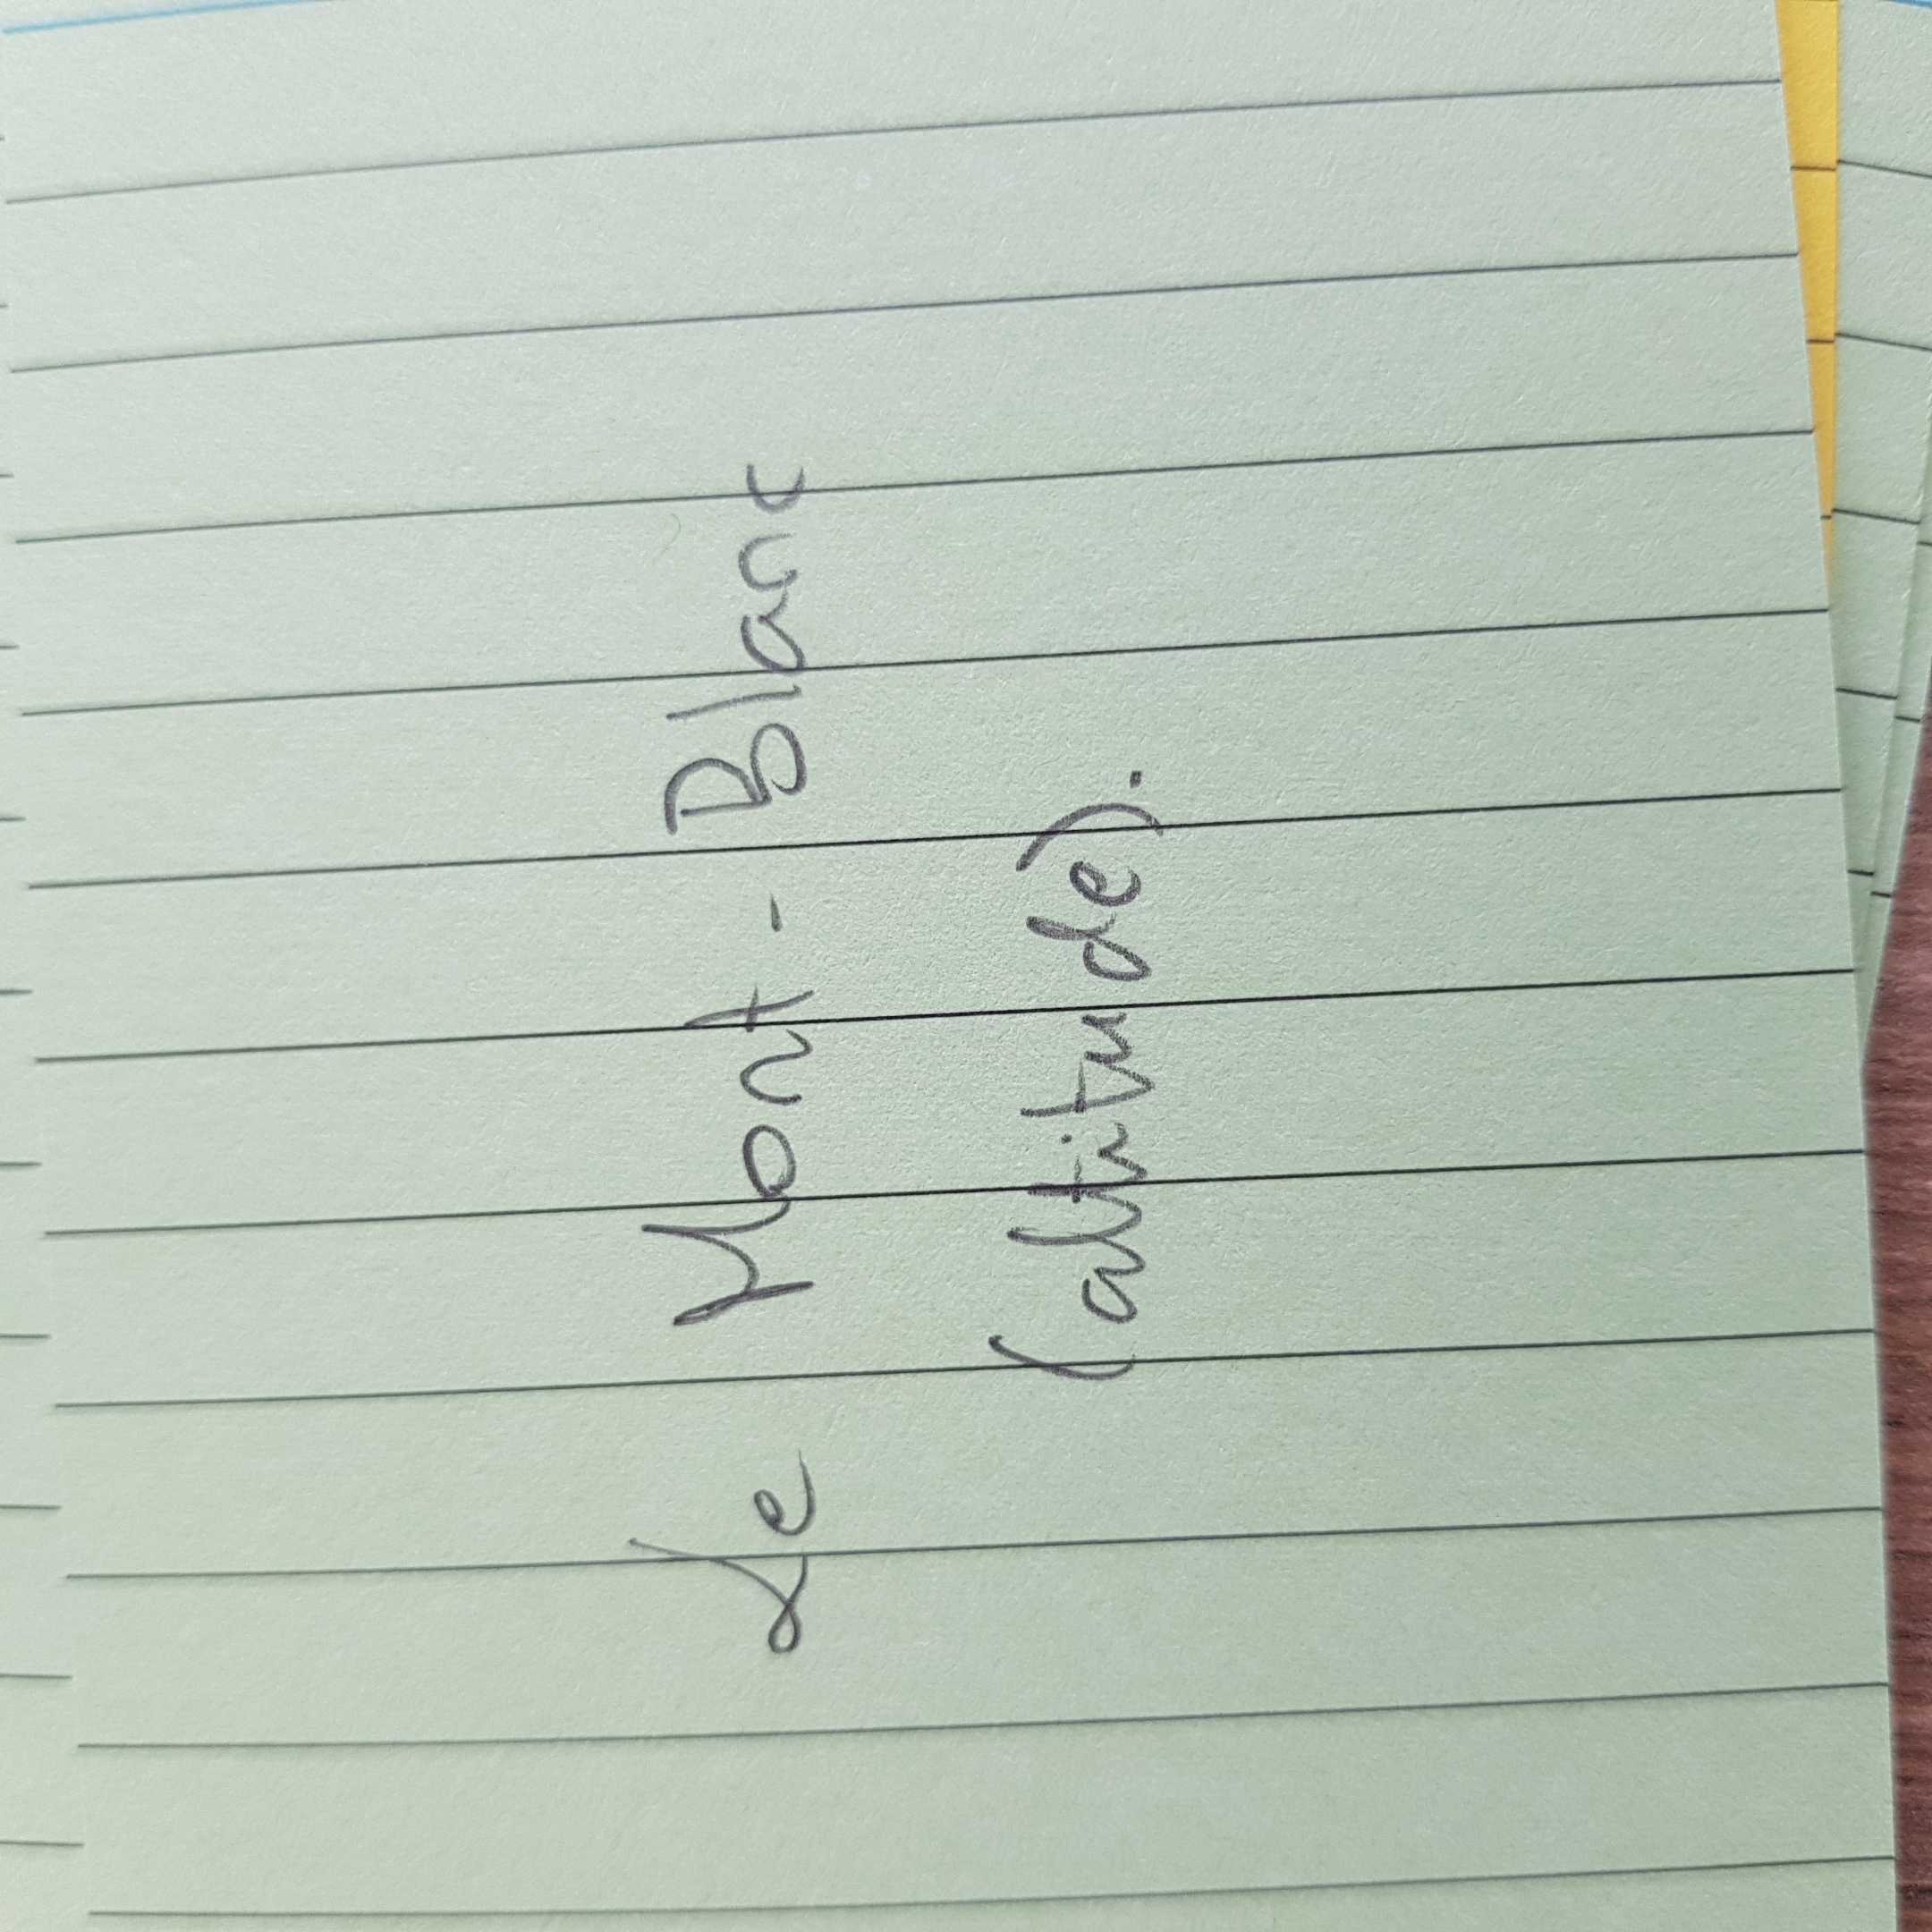 Le Mont-Blanc
(altitude).